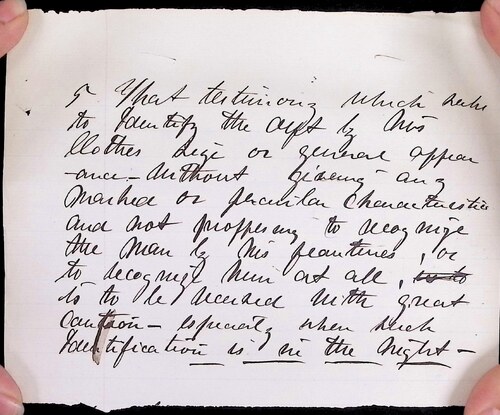 5 That testimony which seeks
to Identify the deft by his
Clothes size or general appear
-ance - without giveing any
marked or peculiar Characteristic
and not proffesing to recognize
the man by his feautures, or
to recognize him at all, is to
is to be received with great
caution - especialy when such
Identification is in the night -